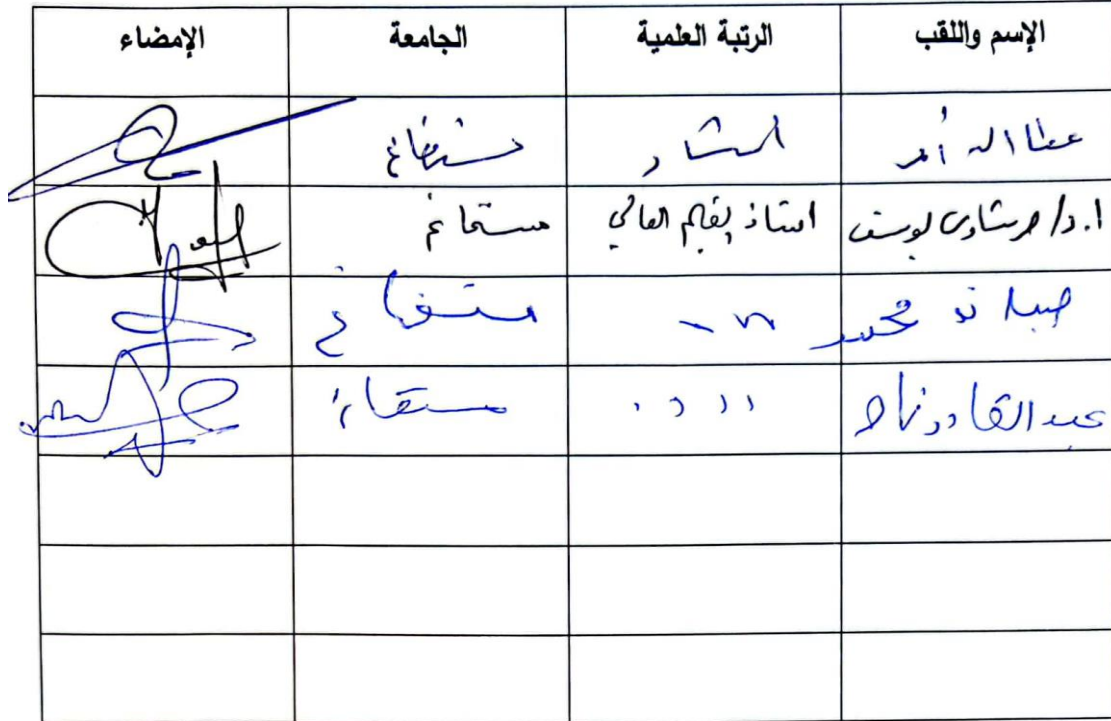 الإسم واللقب الرتبة العلمية الجامعة الإمضاء
عطا الله أحمد مستغانم
ا.د/ حرشاوي يوسف استاذ التعليم العالي مستغانم
محمد مستغانم
عبد القادر مستغانم